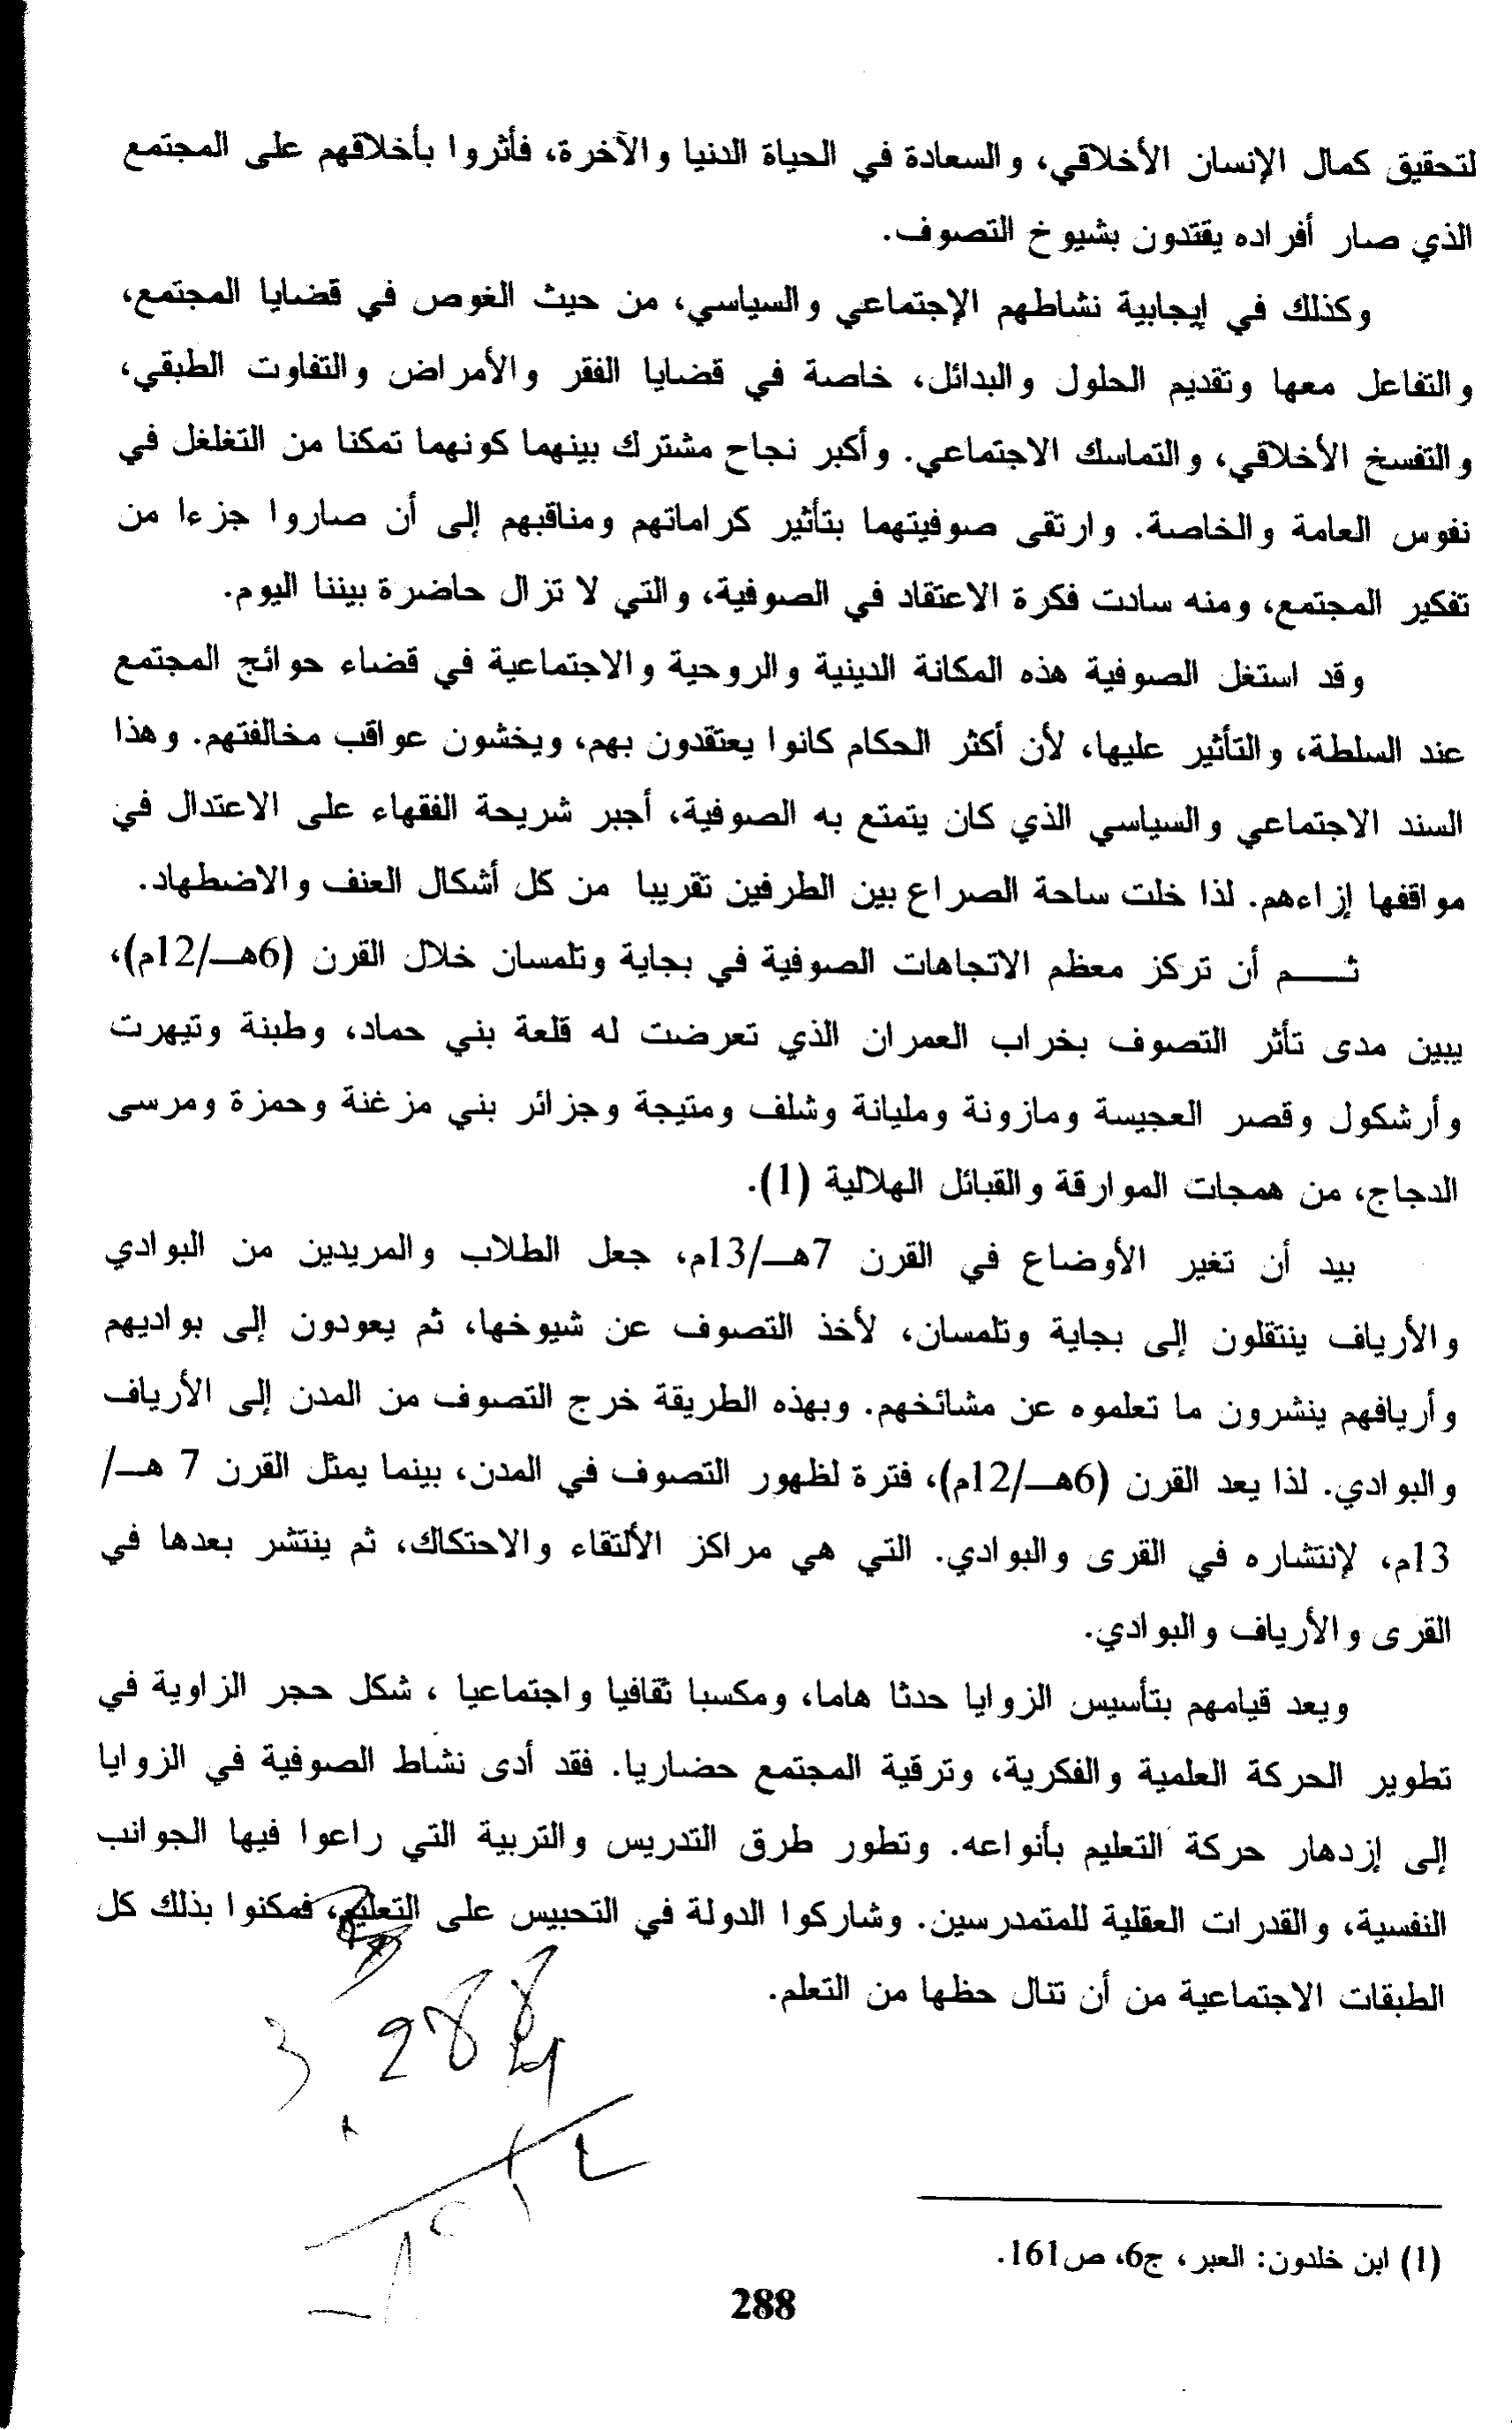 لتحقيق كمال الإنسان الأخلاقي، والسعادة في الحياة الدنيا والآخرة، فأثروا بأخلاقهم على المجتمع
الذي صار أفراده يقتدون بشيوخ التصوف.
وكذلك في إيجابية نشاطهم الإجتماعي والسياسي، من حيث الغوص في قضايا المجتمع،
والتفاعل معها وتقديم الحلول والبدائل، خاصة في قضايا الفقر والأمراض والتفاوت الطبقي،
والتفسخ الأخلاقي، والتماسك الاجتماعي. وأكبر نجاح مشترك بينهما كونهما تمكنا من التغلغل في
نفوس العامة والخاصة. وارتقى صوفيتهما بتأثير كراماتهم ومناقبهم إلى أن صاروا جزءا من
تفكير المجتمع، ومنه سادت فكرة الاعتقاد في الصوفية، والتي لا تزال حاضرة بيننا اليوم.
وقد استغل الصوفية هذه المكانة الدينية والروحية والاجتماعية في قضاء حوائج المجتمع
عند السلطة، والتأثير عليها، لأن أكثر الحكام كانوا يعتقدون بهم، ويخشون عواقب مخالفتهم. وهذا
السند الاجتماعي والسياسي الذي كان يتمتع به الصوفية، أجبر شريحة الفقهاء على الاعتدال في
مواقفها إزاءهم. لذا خلت ساحة الصراع بين الطرفين تقريبا من كل أشكال العنف والاضطهاد.
ثـــم أن تركز معظم الاتجاهات الصوفية في بجاية وتلمسان خلال القرن (6هـ/12م)،
يبين مدى تأثر التصوف بخراب العمران الذي تعرضت له قلعة بني حماد، وطبنة وتيهرت
وأرشكول وقصر العجيسة ومازونة ومليانة وشلف ومتيجة وجزائر بني مزغنة وحمزة ومرسى
الدجاج، من همجات الموارقة والقبائل الهلالية (1).
بيد أن تغير الأوضاع في القرن 7هـ/13م، جعل الطلاب والمريدين من البوادي
والأرياف ينتقلون إلى بجاية وتلمسان، لأخذ التصوف عن شيوخها، ثم يعودون إلى بواديهم
وأريافهم ينشرون ما تعلموه عن مشائخهم. وبهذه الطريقة خرج التصوف من المدن إلى الأرياف
والبوادي. لذا يعد القرن (6هـ/12م)، فترة لظهور التصوف في المدن، بينما يمثل القرن 7 هـ/
13م، لإنتشاره في القرى والبوادي. التي هي مراكز الألتقاء والاحتكاك، ثم ينتشر بعدها في
القرى والأرياف والبوادي.
ويعد قيامهم بتأسيس الزوايا حدثا هاما، ومكسبا ثقافيا واجتماعيا ، شكل حجر الزاوية في
تطوير الحركة العلمية والفكرية، وترقية المجتمع حضاريا. فقد أدى نشاط الصوفية في الزوايا
إلى إزدهار حركة التعليم بأنواعه. وتطور طرق التدريس والتربية التي راعوا فيها الجوانب
النفسية، والقدرات العقلية للمتمدرسين. وشاركوا الدولة في التحبيس على التعليم، فمكنوا بذلك كل
الطبقات الاجتماعية من أن تنال حظها من التعلم.
(1) ابن خلدون: العبر، ج6، ص161.
288